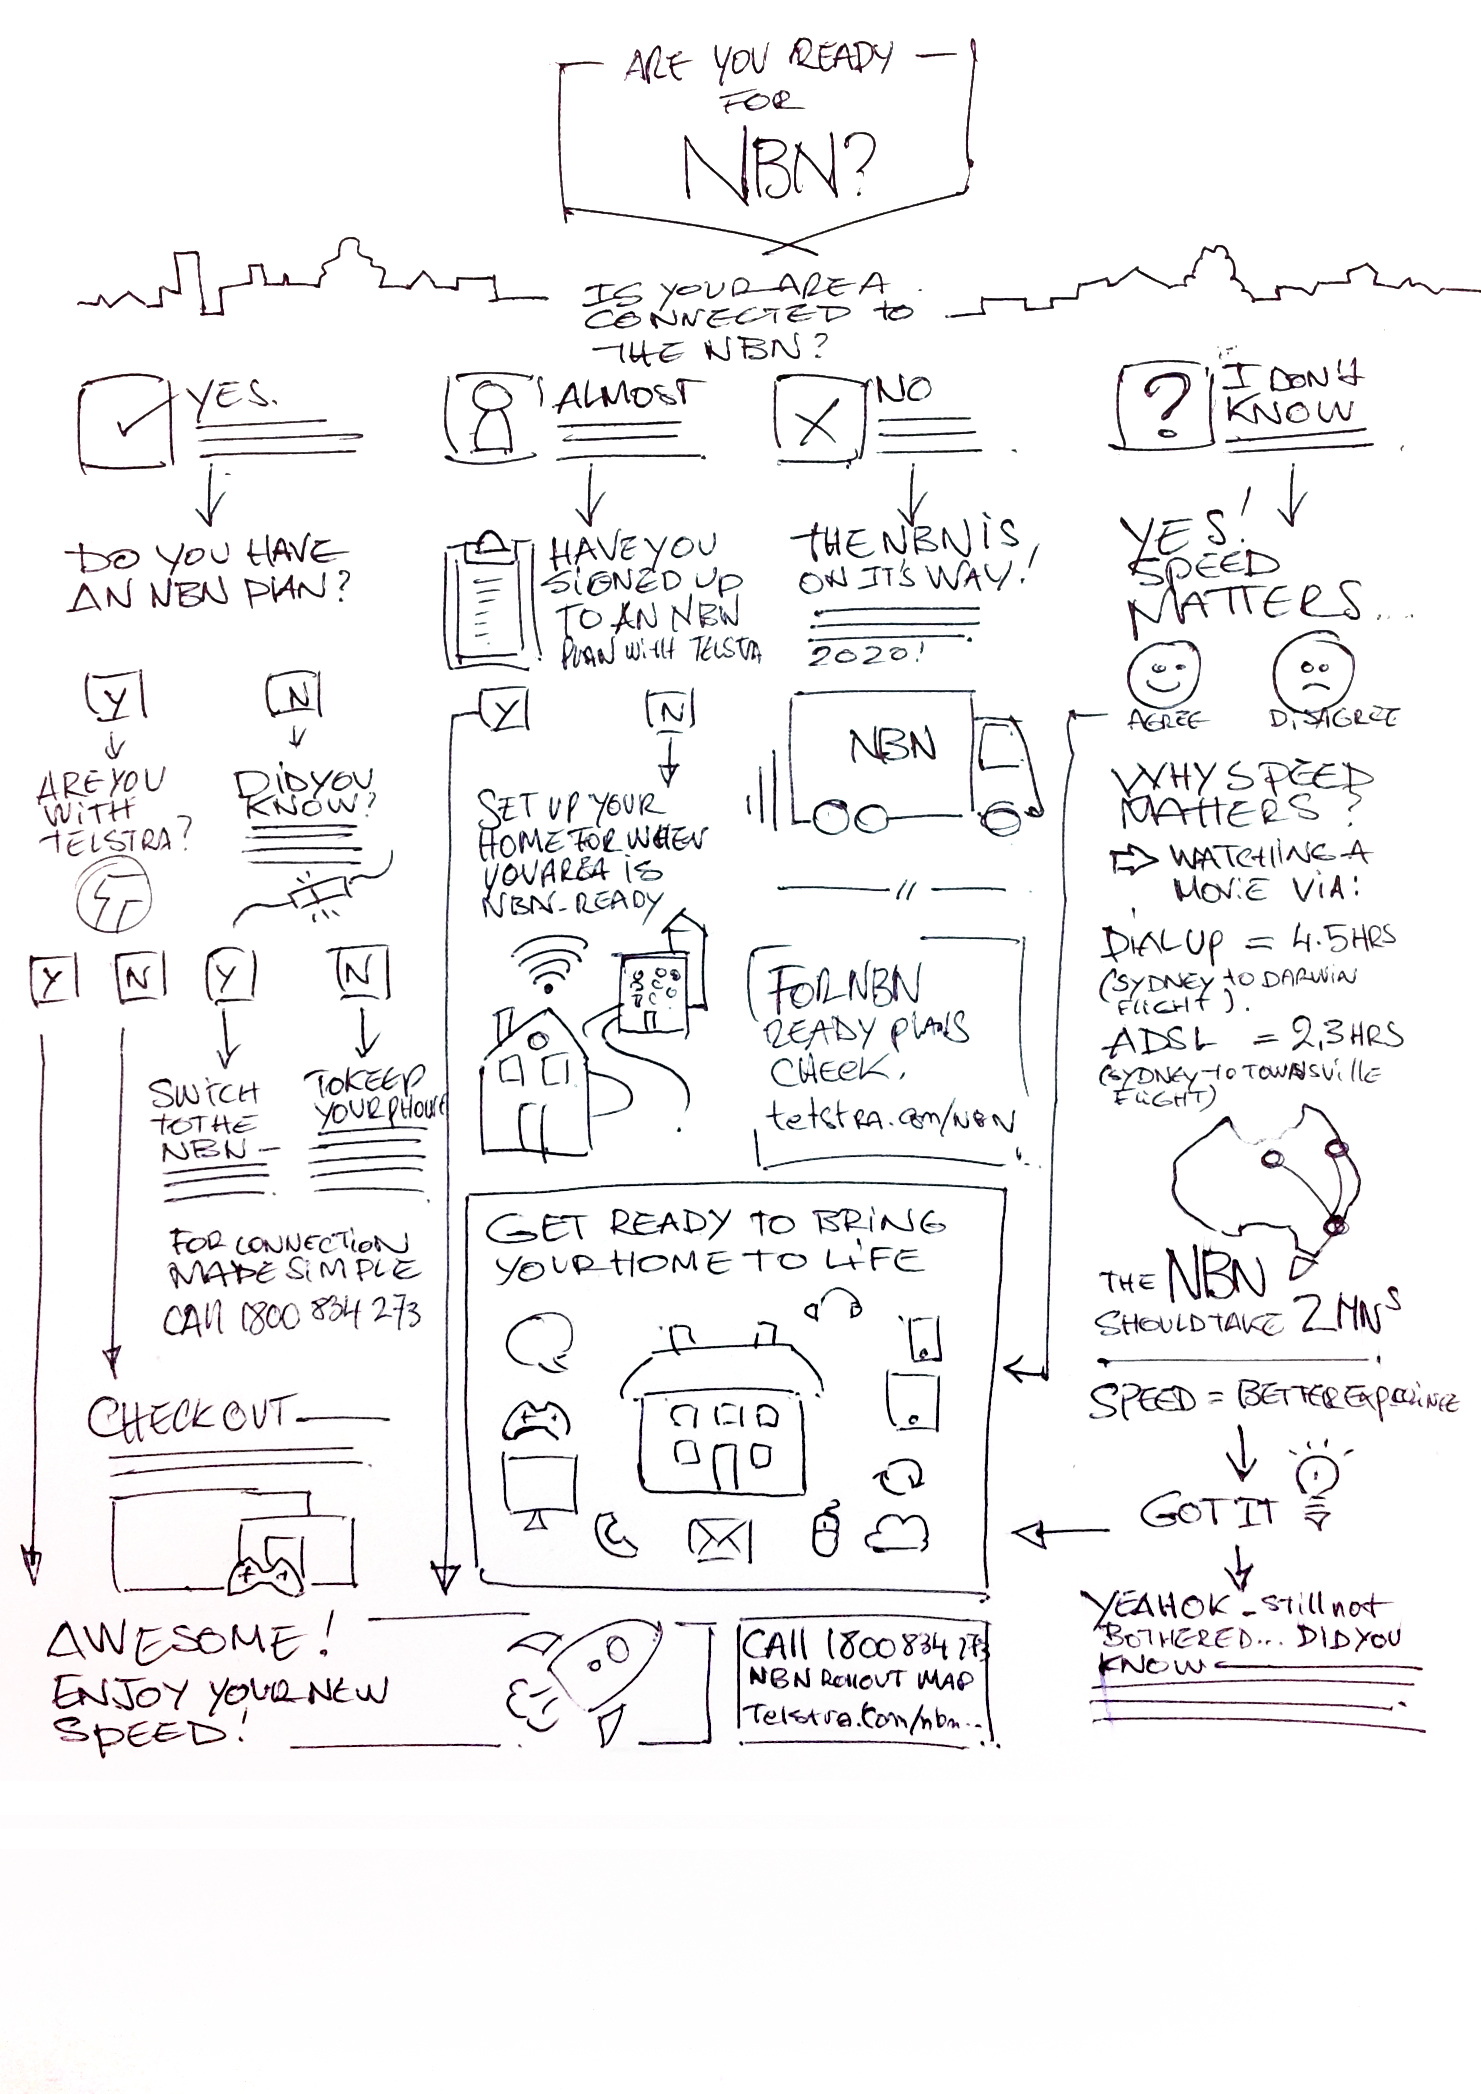 ARE YOU READY
FOR
NBN?
IS YOUR AREA
CONNECTED to
THE NBN?
YES.
DO YOU HAVE
AN NBN PLAN?
Y
N
ARE YOU
WITH
TELSTRA?
DID YOU
KNOW?
Y
N
Y
N
SWITCH
TO THE
NBN -
TO KEEP
YOUR PHONE
FOR CONNECTION
MADE SIMPLE
CALL 1800 834 273
CHECK OUT
AWESOME!
ENJOY YOUR NEW
SPEED!
ALMOST
HAVE YOU
SIGNED UP
TO AN NBN
PLAN WITH TELSTRA
Y
N
SET UP YOUR
HOME FOR WHEN
YOU AREA IS
NBN-READY
NO
THE NBN IS
ON IT'S WAY!
2020!
NBN
FOR NBN
READY PLANS
CHECK.
telstra.com/NBN
GET READY TO BRING
YOUR HOME TO LIFE
CALL 1800 834 273
NBN ROLLOUT MAP
Telstra.Com/nbn...
?
I DON'T
KNOW
YES!
SPEED
MATTERS...
AGREE
DISAGREE
WHY SPEED
MATTERS?
WATCHIING A
MOVIE VIA:
DIAL UP = 4.5 HRS
(SYDNEY to DARWIN
FLIGHT).
ADSL = 2,3 HRS
(SYDNEY TO TOWNSVILLE
FLIGHT)
THE NBN
SHOULD TAKE 2 MNS
SPEED = BETTER EXPERIENCE
GOT IT
YEAH OK - still not
BOTHERED... DID YOU
KNOW